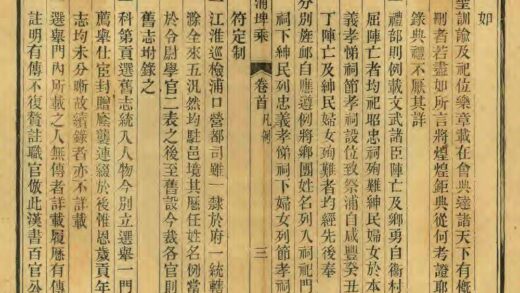 如
聖訓諭及祀位樂章載在會典達諸天下有概
刪者若盡如所言將煌煌鉅典從何考證耶
錄典禮不厭其詳
一禮部則例載文武諸臣陣亡及鄉勇自衛村
屈陣亡者均祀昭忠祠殉難紳民婦女於本
義孝悌祠節孝祠設位致祭浦自咸豐癸丑
丁陣亡及紳民婦女殉難者均經先後奉
分別旌䘏自應遵例將鄉團姓名列入祠祀門
祠下紳民列忠義孝悌祠下婦女列節孝祠
浦埤乘 卷首 凡例 三
符定制
一江淮巡檢浦口營都司雖一隸於府一統轄
滁全來五汛然均駐邑境其歷任姓名例當
於令尉學官二表之後至舊設今裁各官則
舊志坿錄之
一科第貢選舊志統入人物今別立選舉一門
薦舉仕宦封贈廕襲連綴於後惟恩歲貢年
志均未分晰故續錄者亦不詳載
選舉門內所載之人無傳者詳載履歷有傳
註明有傳不復贅註職官倣此漢書百官公